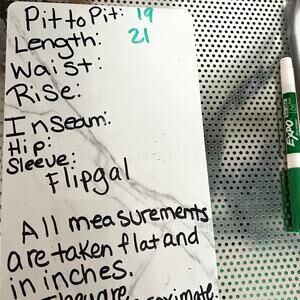 Pit to Pit: 19
Length: 21
Waist:
Rise:
Inseam:
Hip:
Sleeve:
Flipgal
All measurements
are taken flat and
in inches.
They are approximate.
EXPO